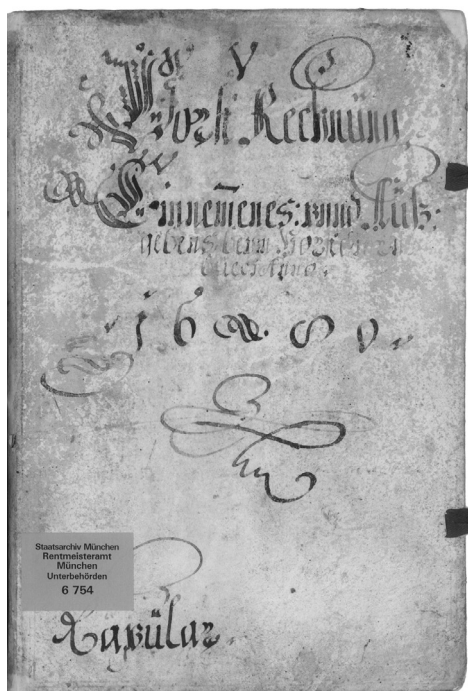 Vorst Rechnung
Einnemenes: vnnd Auß:
gebens beim
Anno.
16 80
Staatsarchiv München
Rentmeisteramt
München
Unterbehörden
6 754
Rapular